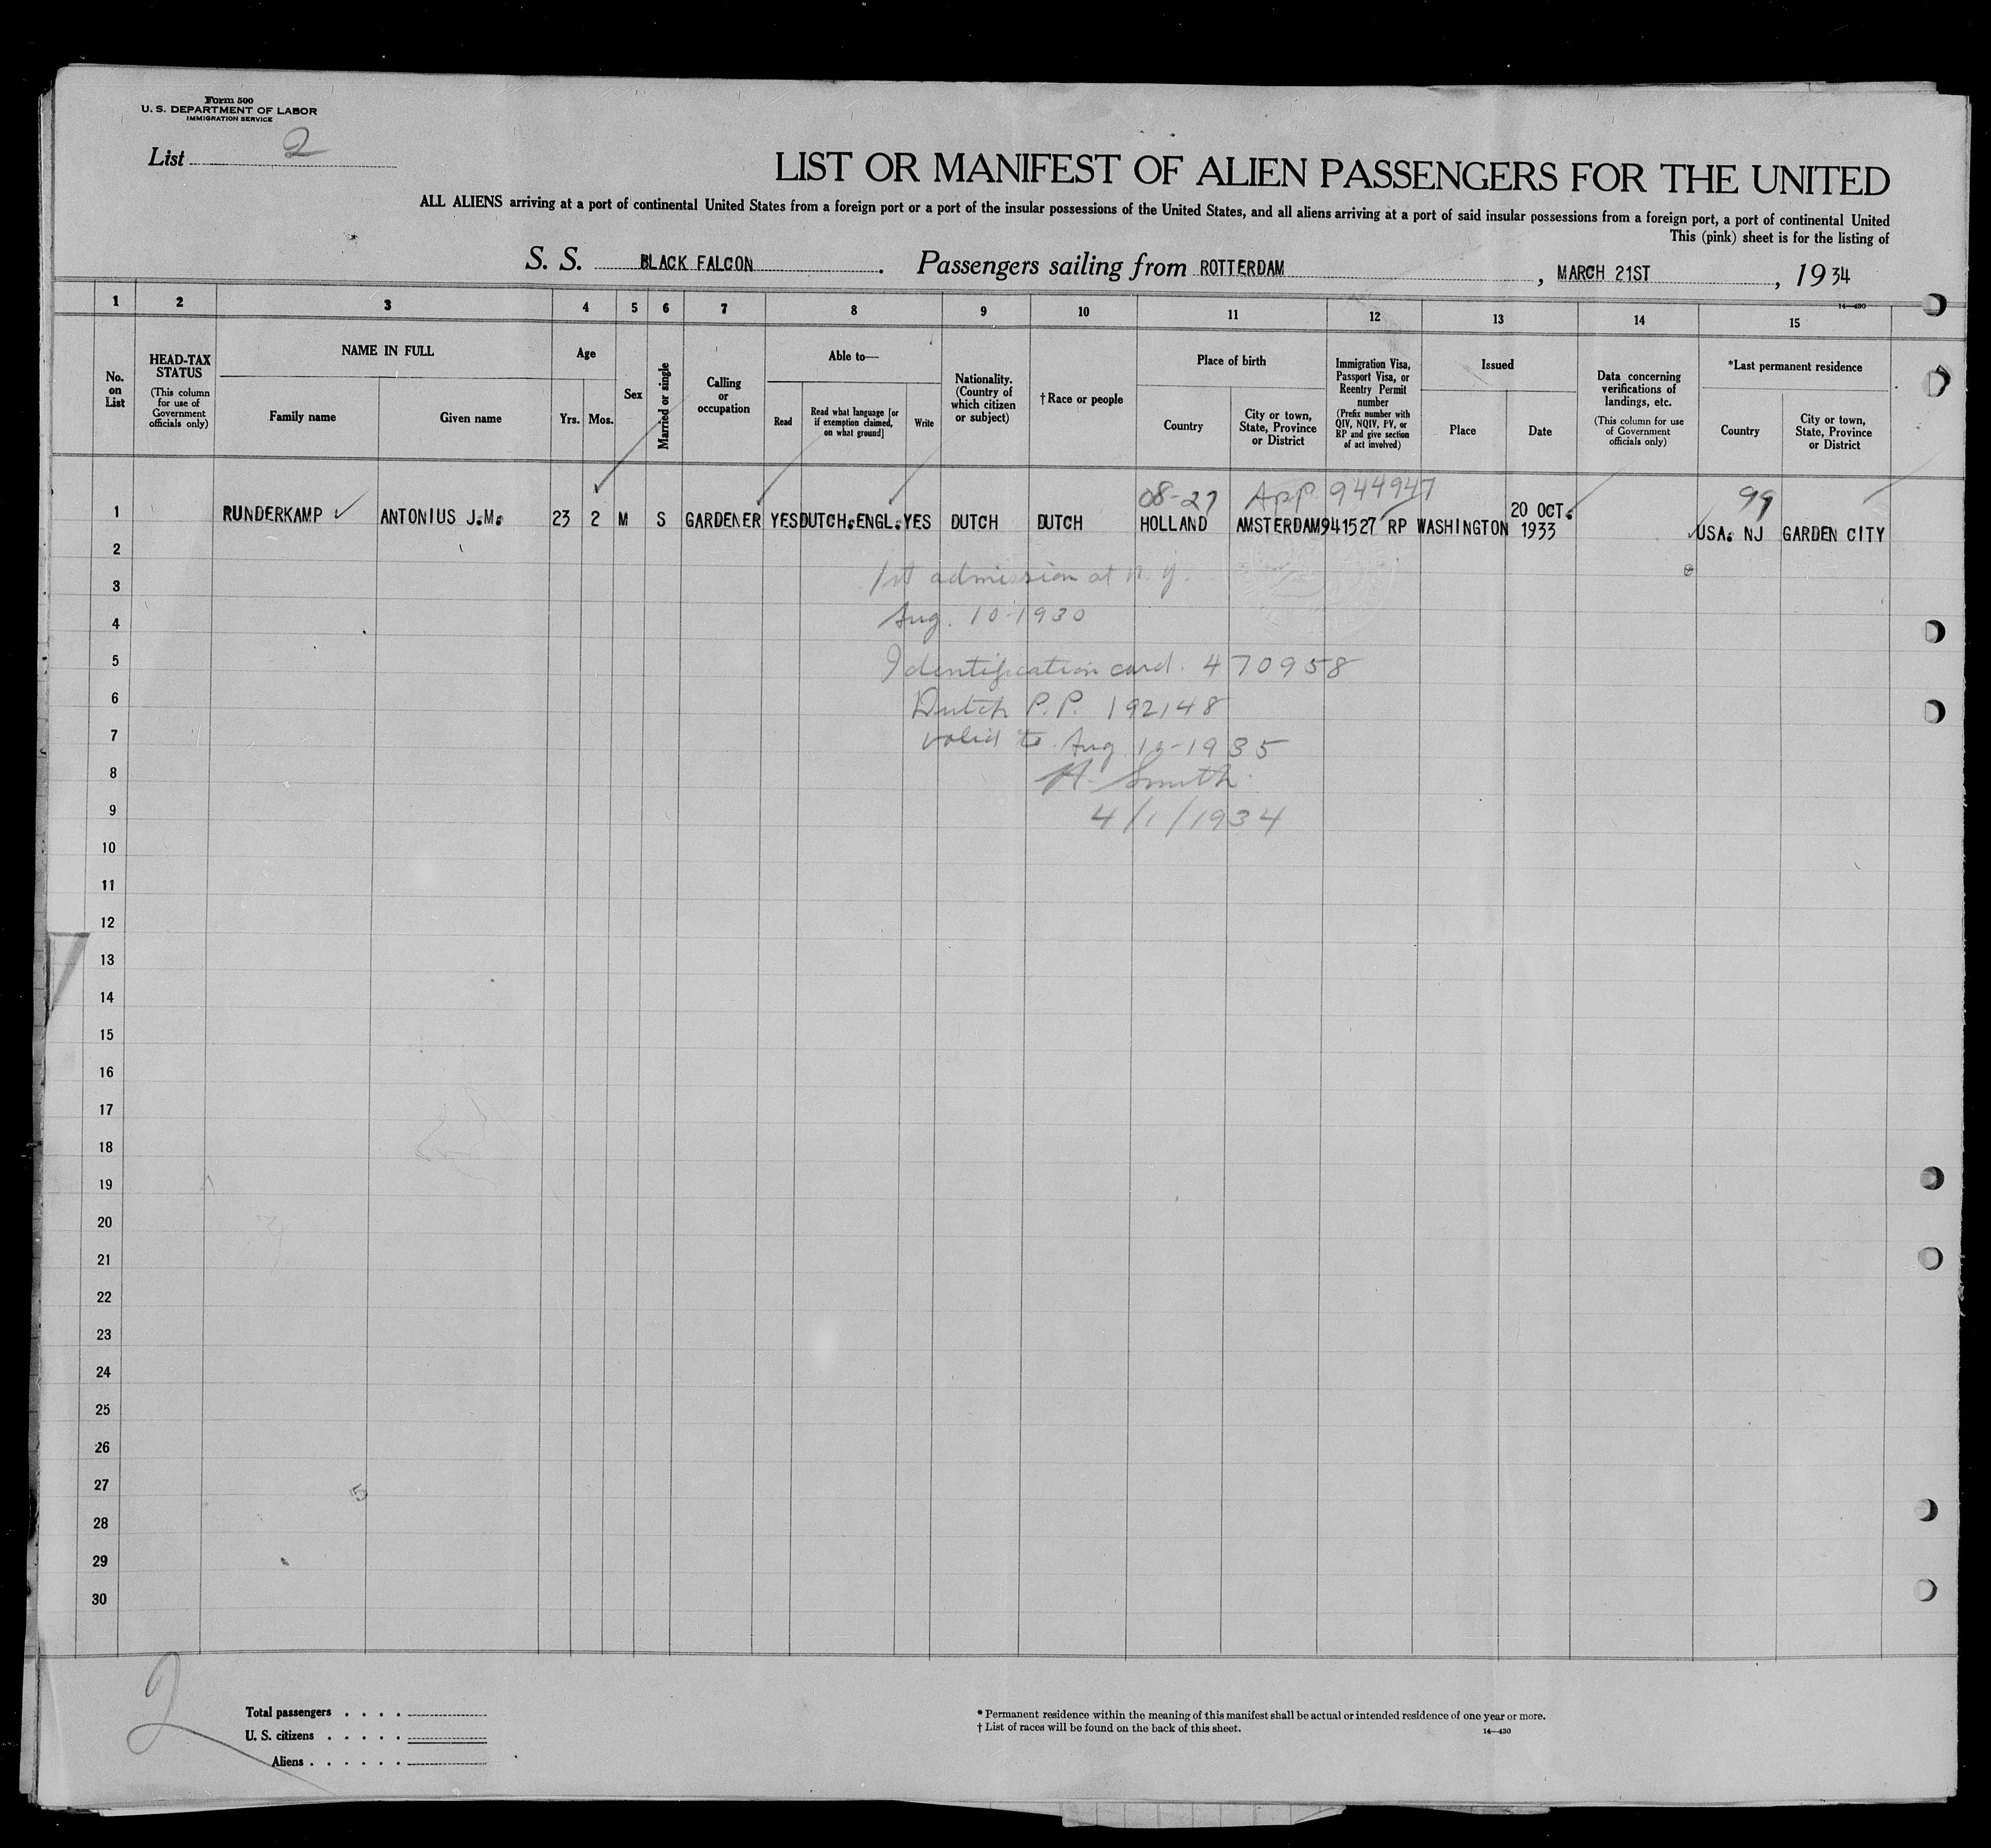 Form 500
U. S. DEPARTMENT OF LABOR
IMMIGRATION SERVICE
List 2
LIST OR MANIFEST OF ALIEN PASSENGERS FOR THE UNITED
ALL ALIENS arriving at a port of continental United States from a foreign port or a port of the insular possessions of the United States, and all aliens arriving at a port of said insular possessions from a foreign port, a port of continental United
This (pink) sheet is for the listing of
S. S. BLACK FALCON. Passengers sailing from ROTTERDAM, MARCH 21ST, 1934
14—430
1 2 3 4 5 6 7 8 9 10 11 12 13 14 15
No. on List
HEAD-TAX STATUS
(This column for use of Government officials only)
NAME IN FULL
Family name
Given name
Age
Yrs.
Mos.
Sex
Married or single
Calling or occupation
Able to—
Read
Read what language [or if exemption claimed, on what ground]
Write
Nationality. (Country of which citizen or subject)
†Race or people
Place of birth
Country
City or town, State, Province or District
Immigration Visa, Passport Visa, or Reentry Permit number
(Prefix number with QIV, NQIV, PV, or RP and give section of act involved)
Issued
Place
Date
Data concerning verifications of landings, etc.
(This column for use of Government officials only)
*Last permanent residence
Country
City or town, State, Province or District
08-27 APP 944947 99
1 RUNDERKAMP ANTONIUS J.M. 23 2 M S GARDENER YES DUTCH.ENGL. YES DUTCH DUTCH HOLLAND AMSTERDAM 941527 RP WASHINGTON 20 OCT. 1933 USA. NJ GARDEN CITY
2
1st admission at N.Y.
3
Aug. 10-1930
4
5 Identification card. 470958
6 Dutch P.P. 192148
7 valid to Aug 10-1935
8 H. Smith
9 4/1/1934
10
11
12
13
14
15
16
17
18
19
20
21
22
23
24
25
26
27
5
28
29
30
2
Total passengers . . . .
U. S. citizens . . . . .
Aliens . . . . . .
* Permanent residence within the meaning of this manifest shall be actual or intended residence of one year or more.
† List of races will be found on the back of this sheet.
14—430